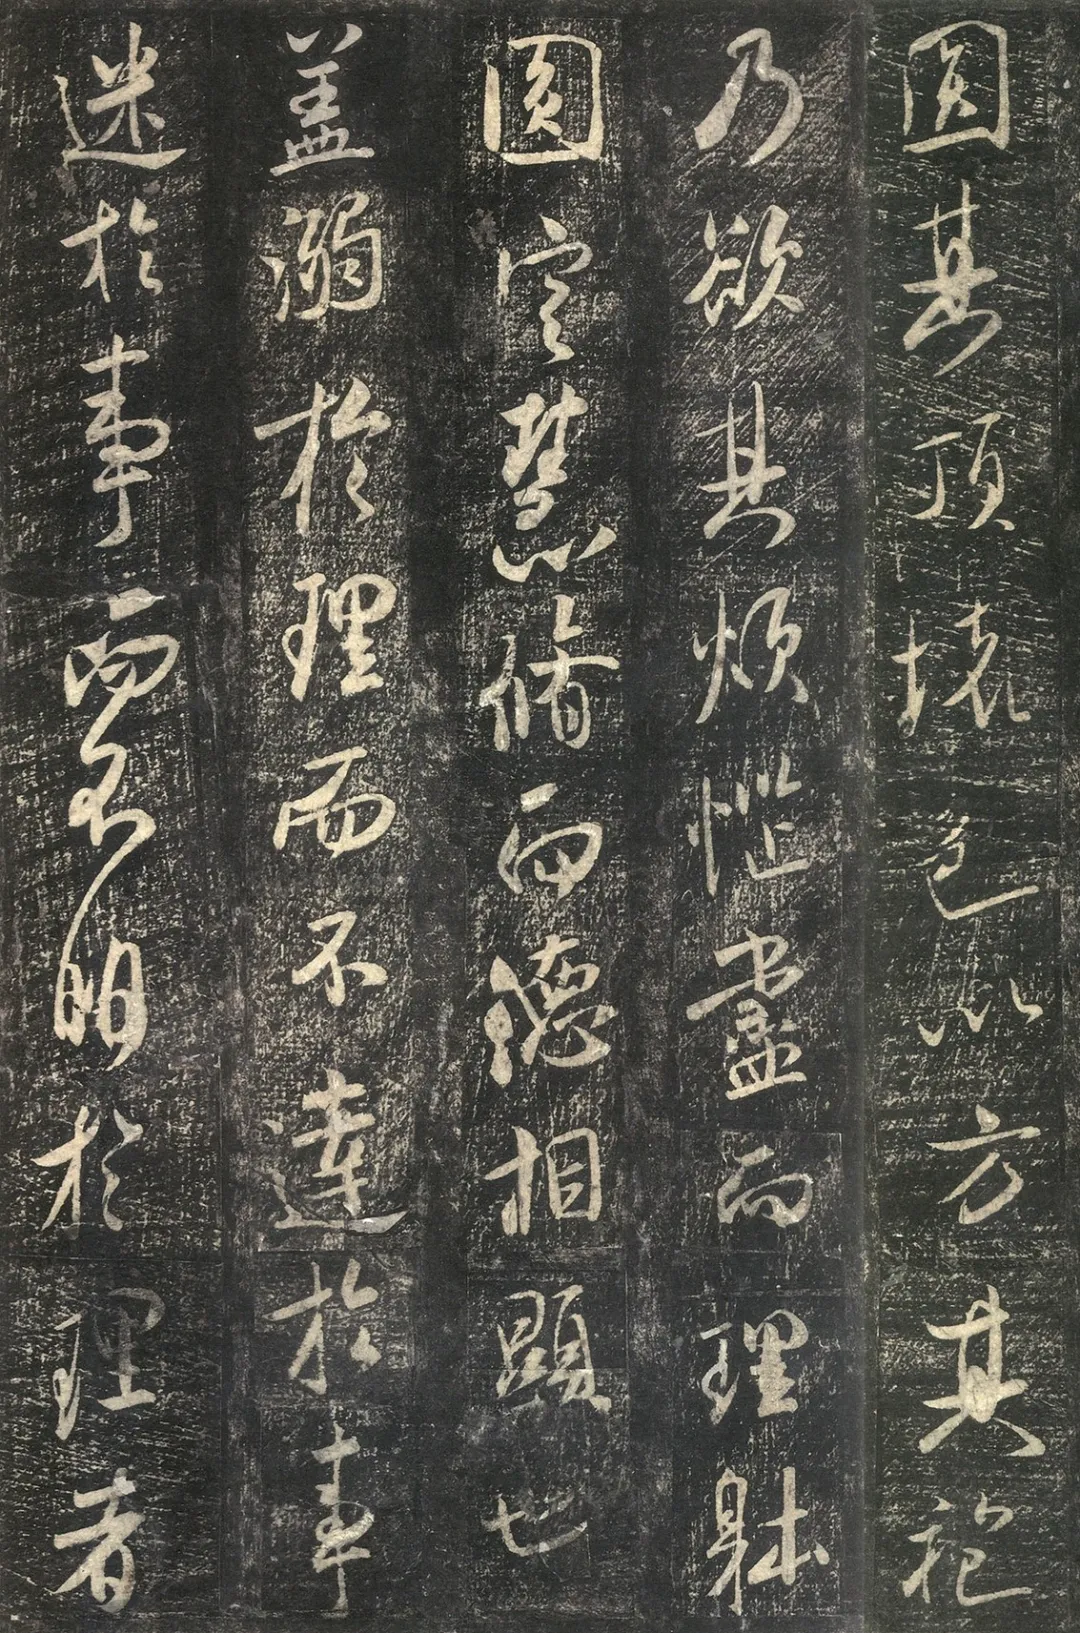 圓其頂壞色以方其袍
乃欲其煩惱盡而理躰
圓定慧脩而德相顯也
盖溺於理而不達於事
迷於事而不明於理者